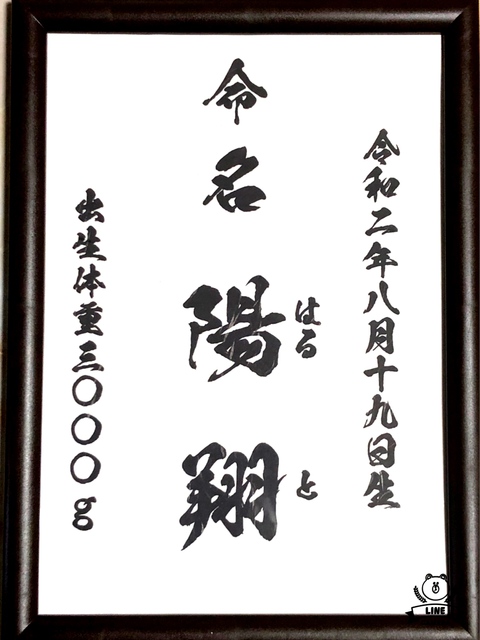 令和二年八月十九日生
命名 陽翔
はると
出生体重三〇〇〇g
LINE